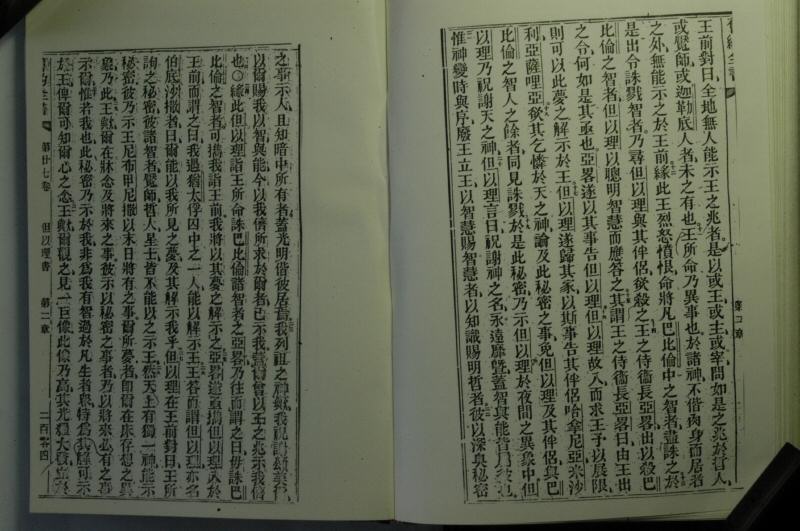 舊約全書
第二章
王前對曰全地無人能示王之兆者是以或王或主或宰問如是之兆於哲人
或覺師或迦勒底人者未之有也王所命乃異事也於諸神不偕肉身而居者
之外無能示之於王前緣此王烈怒憤恨命將凡巴比倫中之智者盡誅之於
是出令誅戮智者乃尋但以理與其伴侶欲殺之王之侍衞長亞畧出以殺巴
比倫之智者但以理以聰明智慧而應答之其謂王之侍衞長亞畧曰由王出
之令何如是其亟也亞畧遂以其事告但以理但以理故入而求王予以展限
則可以此夢之解示於王但以理遂歸其家以斯事告其伴侶哈拿尼亞米沙
利亞薩哩亞欲其乞憐於天之神論及此秘密之事免但以理及其伴侶與巴
比倫之智人之餘者同見誅戮於是此秘密乃示但以理於夜間之異象中但
以理乃祝謝天之神但以理言曰祝謝神之名永遠靡曁蓋智與能皆
惟神變時與序廢王立王以智慧賜智慧者以知識賜明哲者彼以深奥秘密
之事示人且知暗中所有者蓋光明偕彼居我列祖之神歟我祝謝頌美
以爾賜我以智與能今以我儕所求於爾者已示我蓋爾曾以王之兆示我儕
也○緣此但以理詣王所命誅巴比倫諸智者之亞畧乃往而謂之曰毋誅巴
比倫之智者可攜我詣王前我將以其夢之解示之亞畧遂亟攜但以理入於
王前而謂之曰我遇猶太俘囚中之一人能以解示王王答而謂但以理亦名
伯底沙撒者曰爾能以我所見之夢及其解示我乎但以理在王前對曰王所
詢之秘密彼諸智者覺師哲人星士皆不能以之示王然天上有獨一神能示
秘密彼乃示王尼布甲尼撒以末日將有之事爾所夢者卽爾在牀在想之異
象乃此王歟爾在牀念及將來之事彼示以秘密之事者乃以將來必有之事
示爾惟若我也此秘密乃示於我非爲我有智過於凡生者惟特爲其解可示
於王俾爾可知爾心之念王歟爾觀之見一巨像此像乃高其光
舊約全書 第廿七卷 但以理書 第二章 二百零四